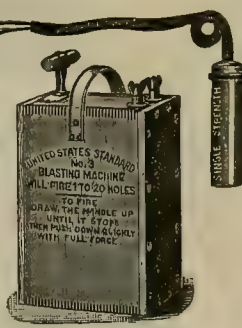 UNITED STATES STANDARD
No. 3
BLASTING MACHINE
WILL FIRE 1 TO 20 HOLES
TO FIRE
DRAW, THE HANDLE UP
UNTIL IT STOPS
THEN PUSH DOWN QUICKLY
WITH FULL FORCE.
SINGLE STRENGTH